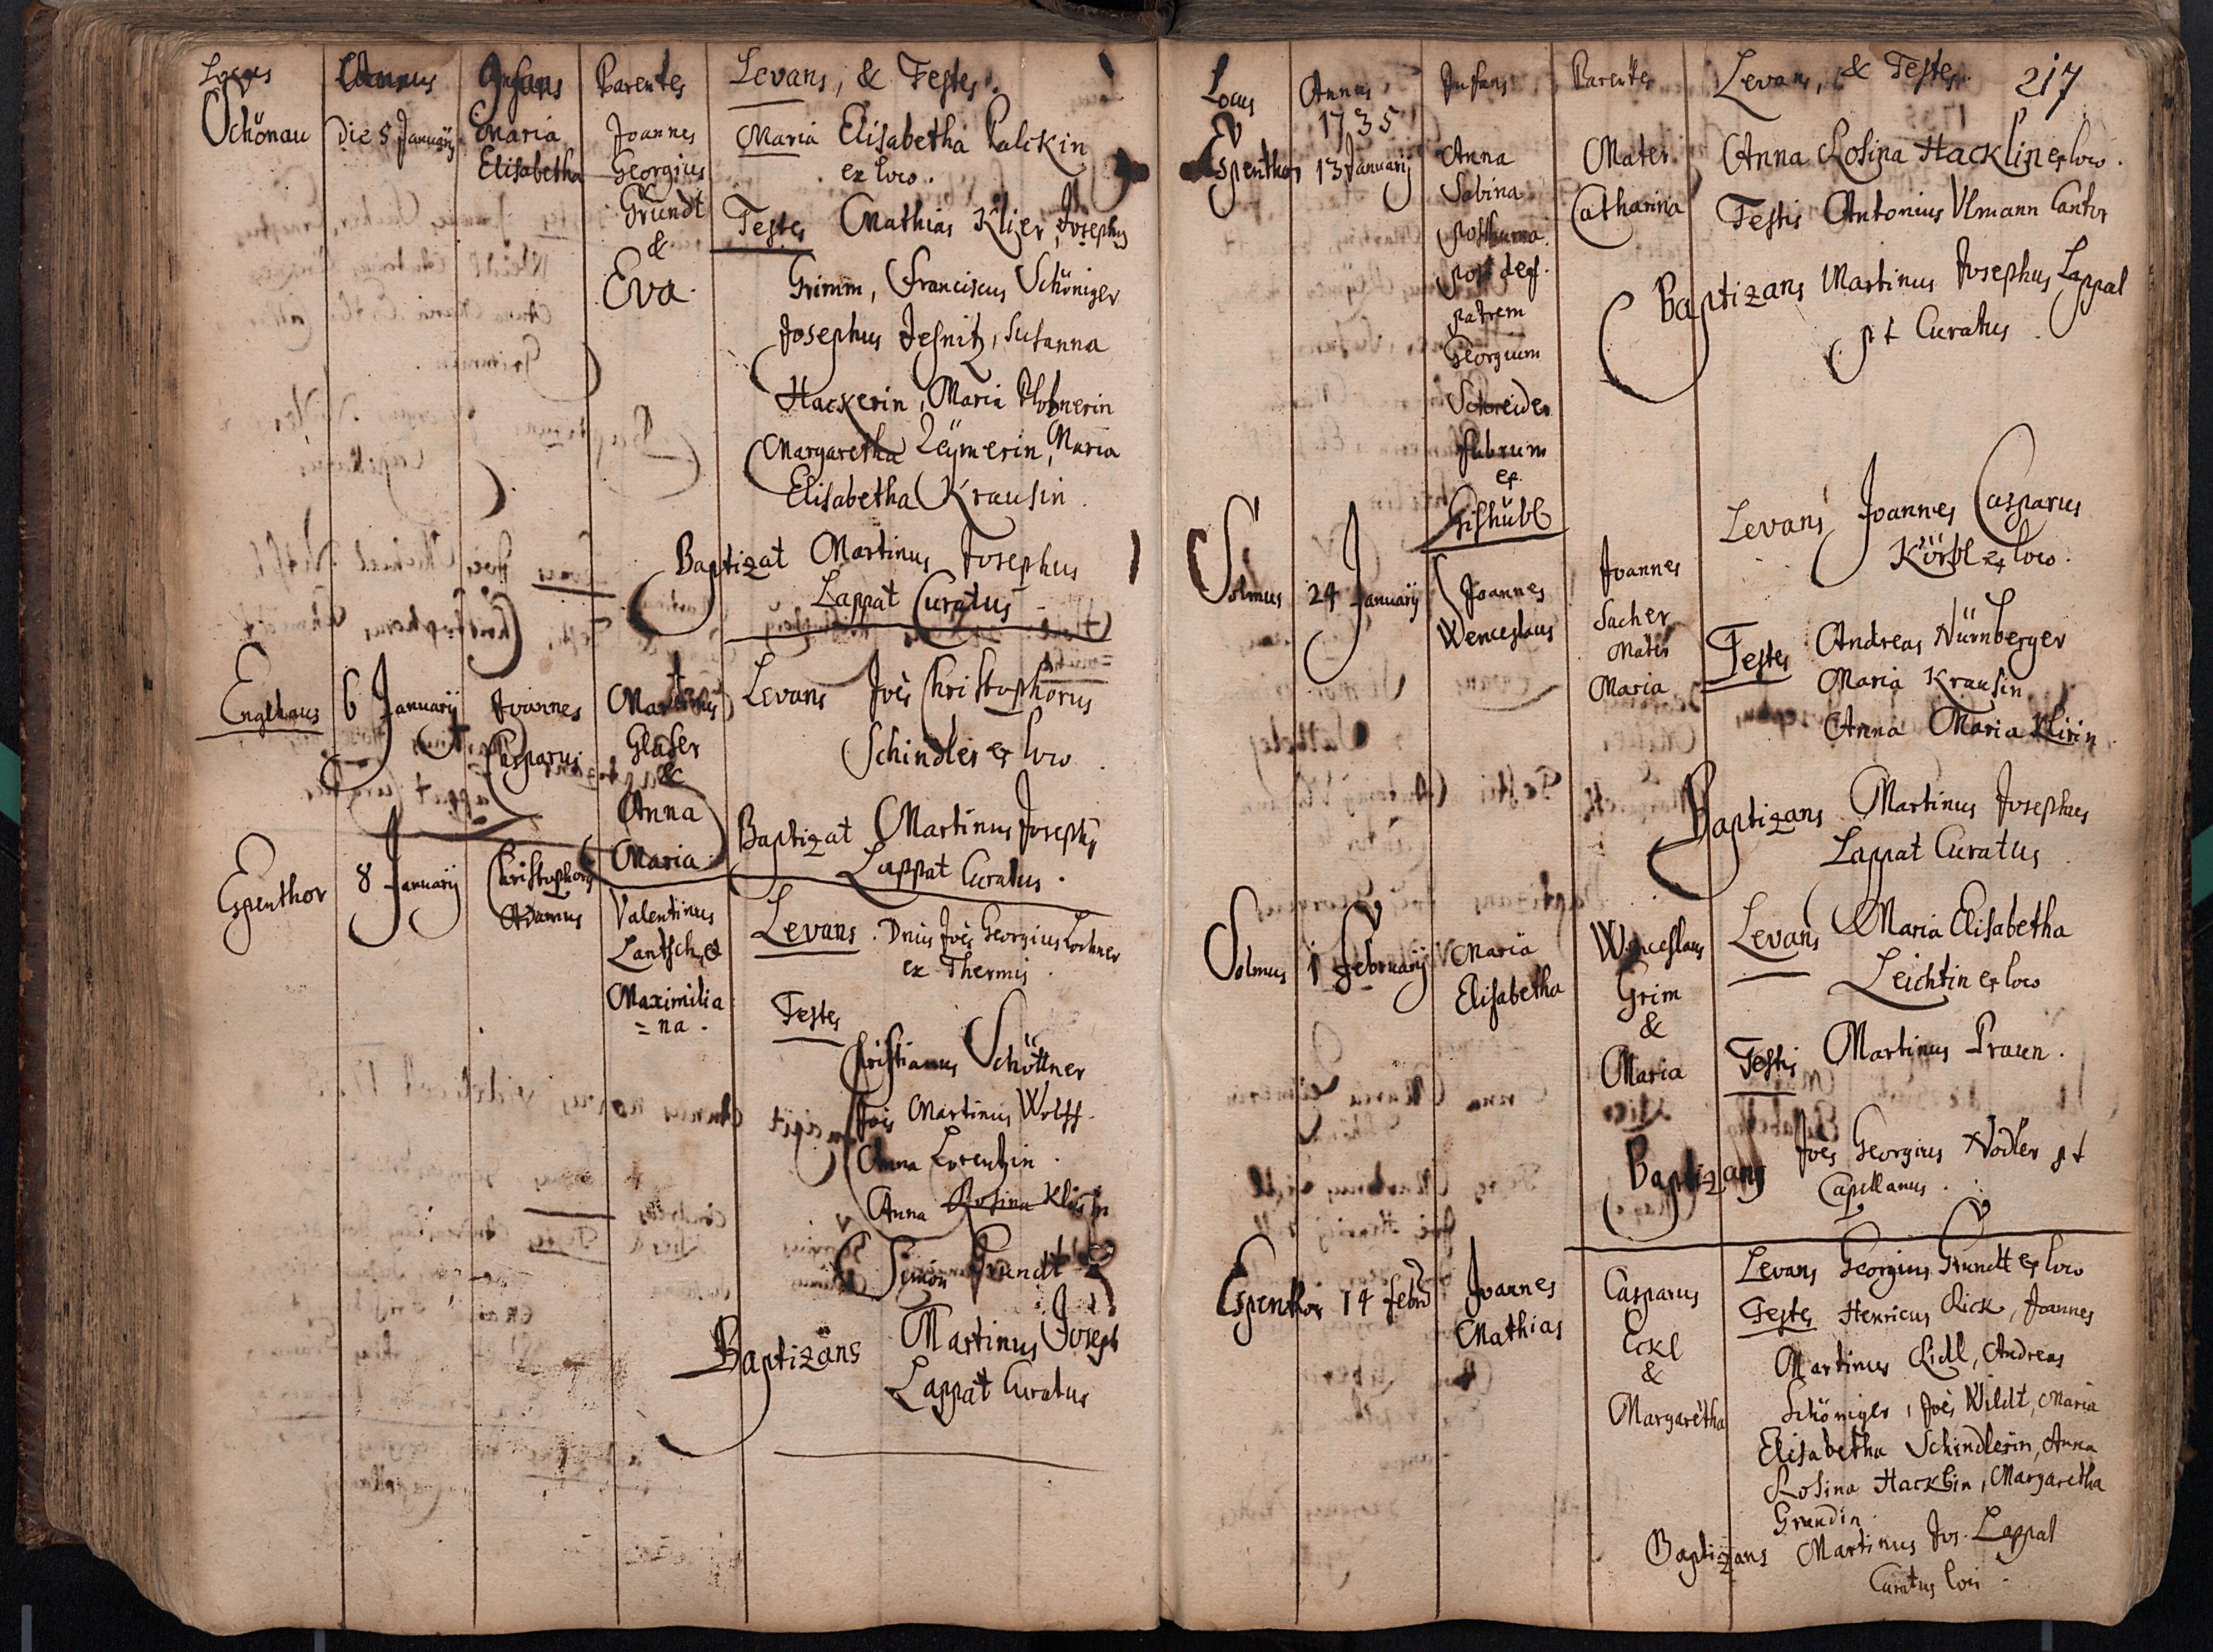 Locus Annus Infans Parentes Levans, & Testes.
Schönau Die 5 Januarij Maria Elisabetha
Joannes
Georgius
Grundt
&
Eva.
Maria Elisabetha Palikin
ex loco.
Testes Mathias Klier, Josephus
Grimm, Franciscus Schöniger
Josephus Jesnitz, Susanna
Hackerin, Maria
Margaretha Leÿmerin, Maria
Elisabetha Krausin.
Baptizat Martinus Josephus
Lappat Curatus
Englhaus 6 Januarij Joannes
Casparus
Martinus
Glaser
&
Anna
Maria
Levans Joes Christophorus
Schindler ex loco
Baptizat Martinus Joseph
Lappat Curatus.
Espenthor 8 Januarij Christophorus
Adamus
Valentinus
Lantsch, &
Maximilia
=na.
Levans. Dnus Joes Georgius Lochner
ex Thermis.
Testes
Christianus Schöttner
Joes Martinus Wolff.
Anna Lorentzin.
Anna Rosina
Simon Grundt
Baptizans Martinus Joseph
Lappat Curatus
Locus Annus Infans Parentes Levans, & Testes. 217
1735
Espenthor 13 Januarij Anna
Sabina
posthuma.
post def.
patrem
Georgium
Schreider
fabrum
ex
Gishübl
Mater
Catharina
Anna Rosina Hacklin ex loco.
Testis Antonius Ulmann Cantor
Baptizans Martinus Josephus Lappat
pt Curatus.
Solmus 24 Januarij Joannes
Wenceslaus
Joannes
Sacher
Mater
Maria
Levans Joannes Casparus
Körbl ex loco.
Testes Andreas Nürnberger
Maria Krausin
Anna Maria Klirin.
Baptizans Martinus Josephus
Lappat Curatus.
Solmus 1 Februarij Maria
Elisabetha
Wenceslaus
Grim
&
Maria
Levans Maria Elisabetha
Leichtin ex loco
Testis Martinus Praun.
Baptizans Joes Georgius Nodler pt
Capellanus.
Espenthor 14 febr Joannes
Mathias
Casparus
Eckl
&
Margaretha
Levans Georgius Grundt ex loco
Testes Henricus Rick, Joannes
Martinus Ridl, Andreas
Schöniger, Joes Wildt, Maria
Elisabetha Schindlerin, Anna
Rosina Hacklin, Margaretha
Grundin.
Baptizans Martinus Jos. Lappat
Curatus loci.